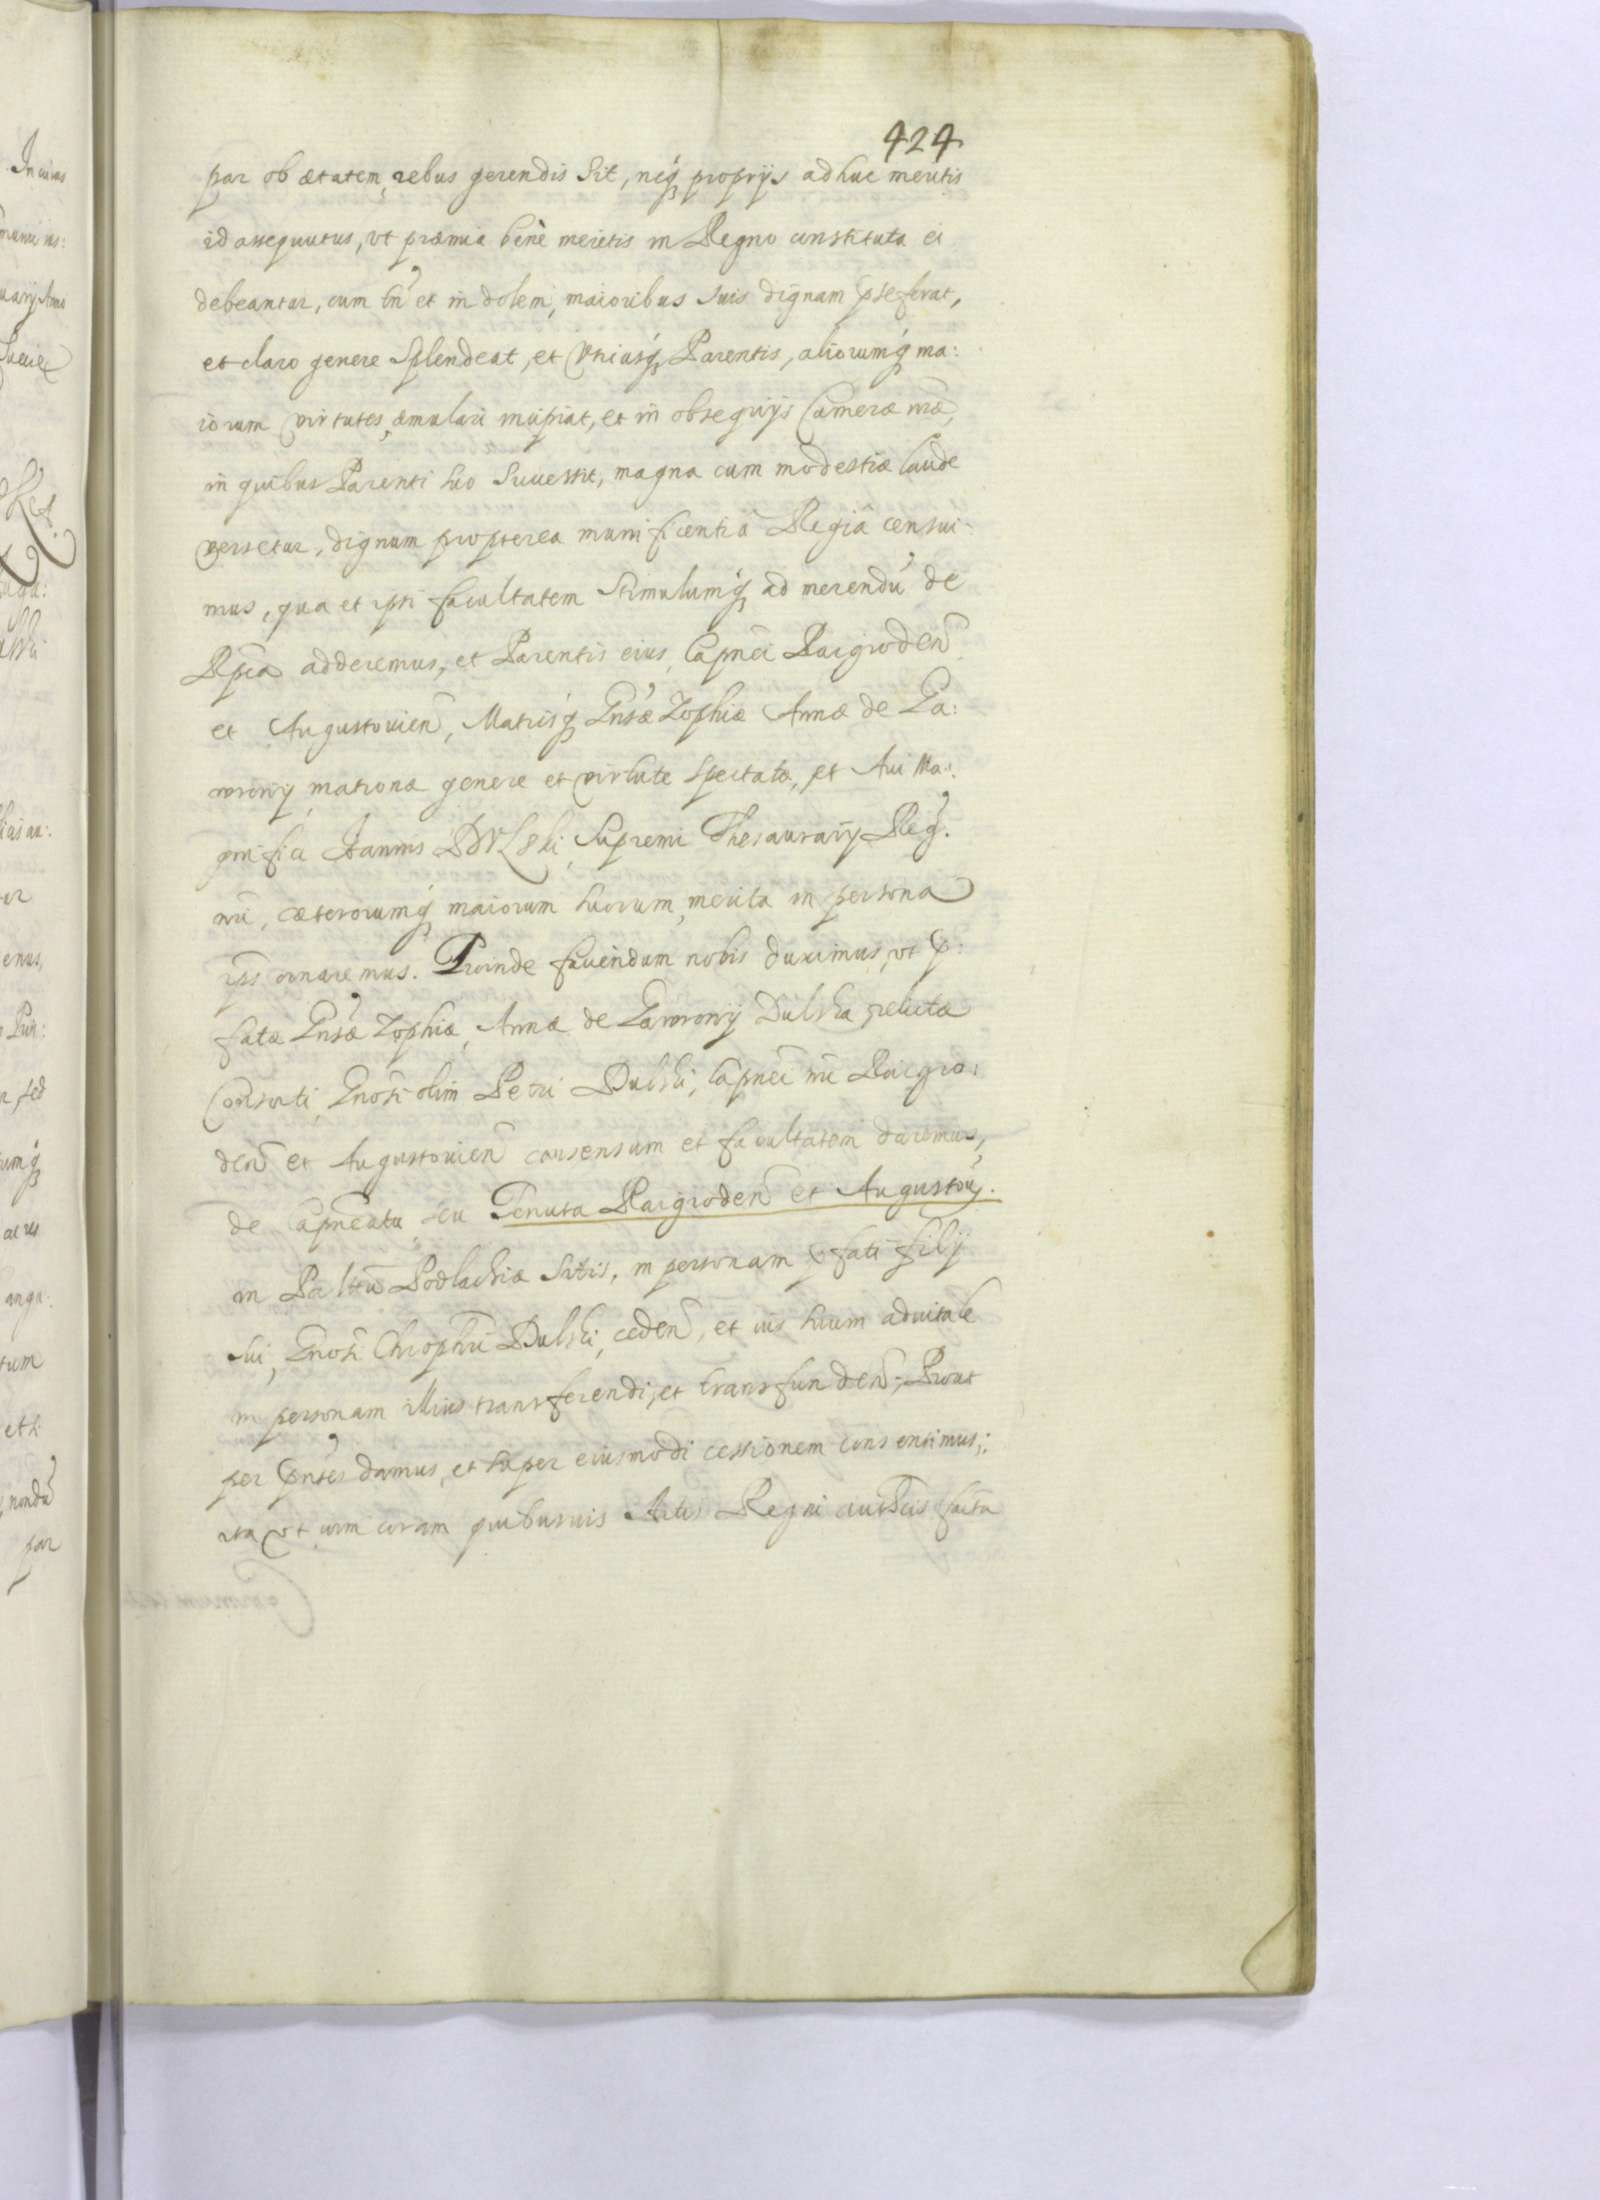 424
par ob ætatem rebus gerendis sit, neq proprijs adhuc meritis
id assequutus, vt præmia benè meritis in Regno constituta ei
debeantur, cum tn et indolem, maioribus suis dignam pseferat,
et claro genere splendeat, et vtriusq Parentis, aliorumq ma:
iorum virtutes æmulari incipiat, et in obsequijs Cameræ nræ,
in quibus Parenti suo successit, magna cum modestiæ laude
versetur, dignum propterea munificentiâ Regiâ censui:
mus, qua et ipsi facultatem stimulumq ad merendũ de
Rpca adderemus, et Parentis eius, Capnei Raigroden
et Augustouien, Matrisq Gnsæ Zophiæ Annæ de Ga:
wrony matronæ genere et virtute spectatæ, et Aui Ma:
gnifici Joannis DVLski, Supremi Thesaurarij Reg.
nri, cæterorumq maiorum suorum, merita in persona
ipsius ornaremus. Proinde fauendum nobis duximus, vt p:
fatæ Gnsæ Zophiæ, Annæ de Gawrony Dulska relictæ
Consorti, Gnosi olim Petri Dulski, Capnei nri Raigro:
den et Augustouien consensum et facultatem daremus,
de Capneatu seu Tenuta Raigroden et Augustoũ.
in Paltũ Podlachiæ sitis, in personam pfati filij
sui, Gnosi Chrophri Dulski, ceden, et ius suum aduitale
in personam illius transferendi, et transfunden, Prout
per pntes damus, et super eiusmodi cessionem consentimus;
ita vt cum coram quibusuis Actis Regni authcis facta